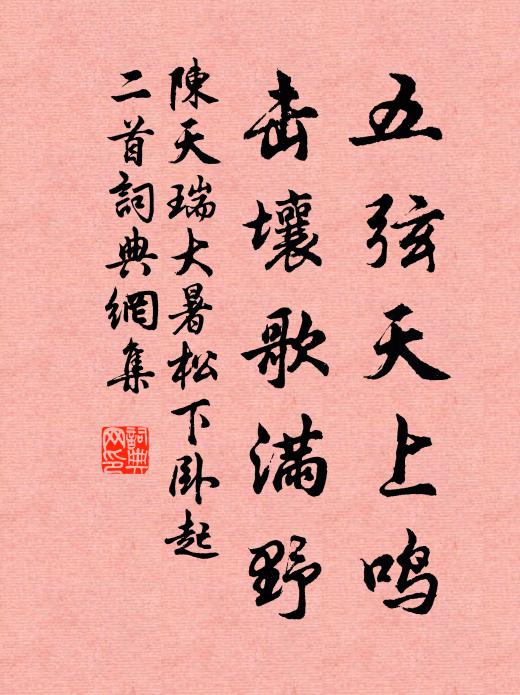 五弦天上鸣
击壤歌满野
陳天瑞大暑松下卧起
二首詞典網集
詞典
网印